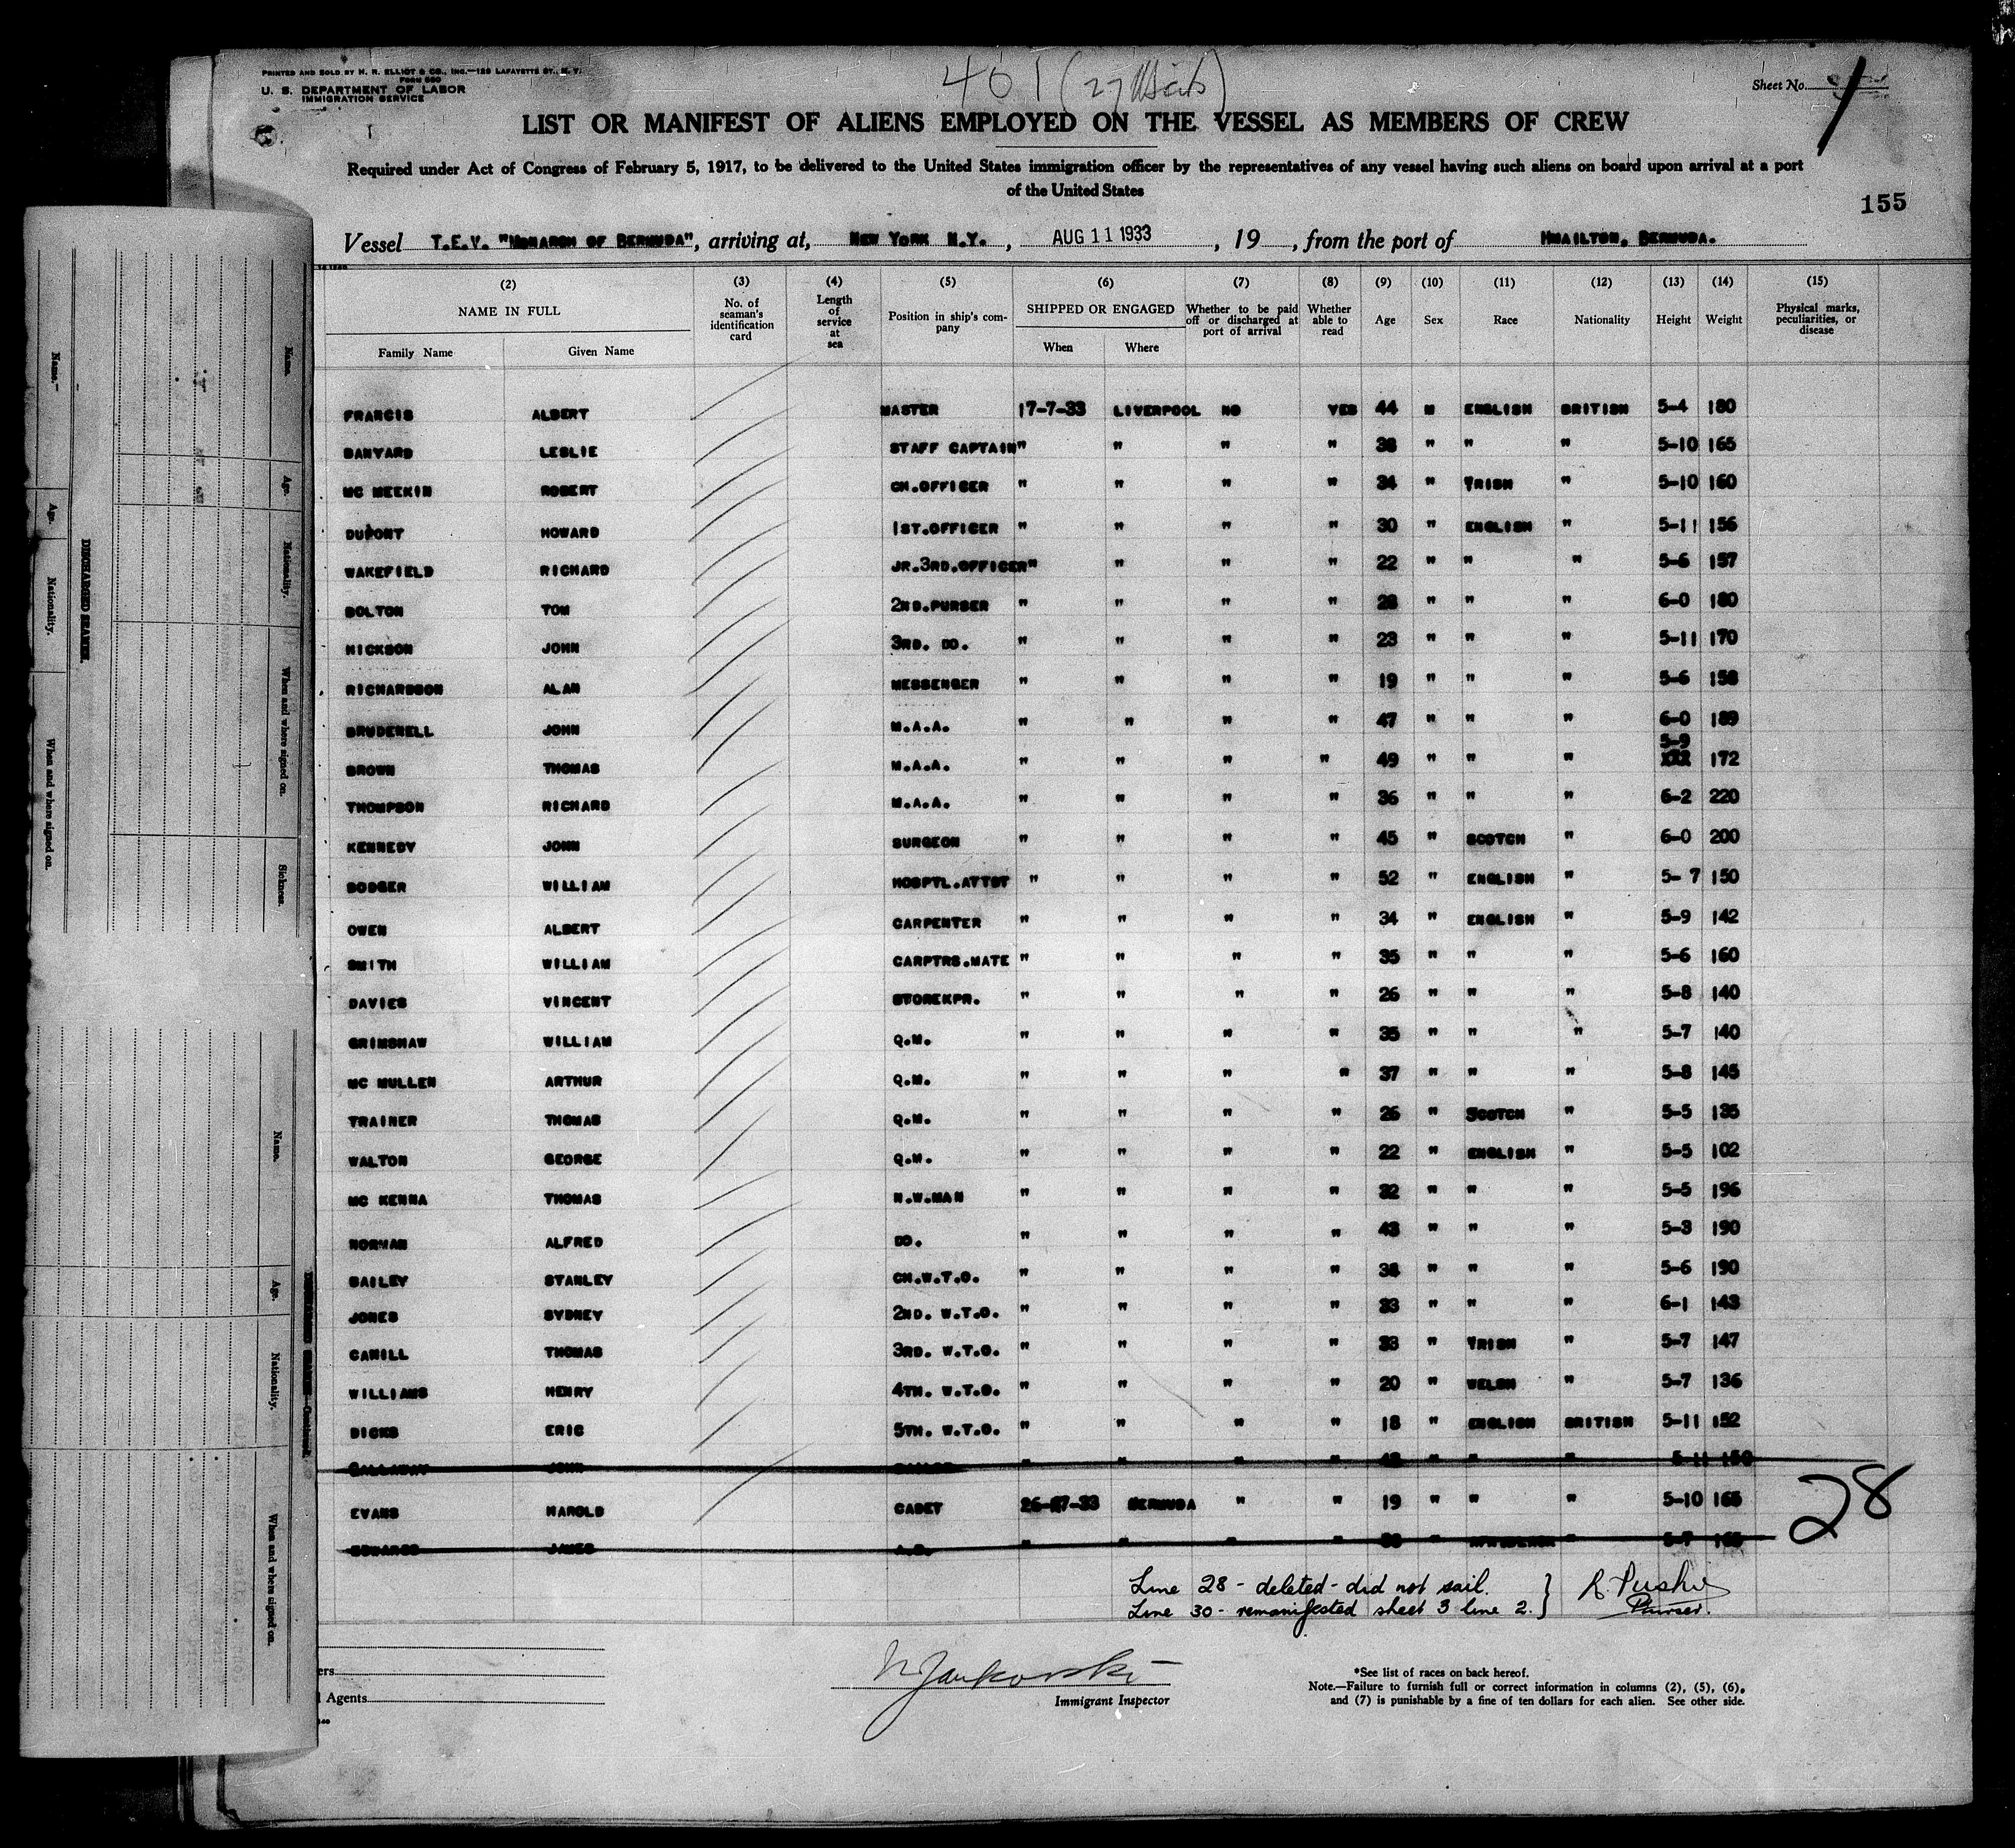 PRINTED AND SOLD BY H. R. ELLIOT & CO., INC.—129 LAFAYETTE ST., N. Y.
FORM 680
U. S. DEPARTMENT OF LABOR
IMMIGRATION SERVICE
461 (27
Sheet No. 1
LIST OR MANIFEST OF ALIENS EMPLOYED ON THE VESSEL AS MEMBERS OF CREW
Required under Act of Congress of February 5, 1917, to be delivered to the United States immigration officer by the representatives of any vessel having such aliens on board upon arrival at a port
of the United States
155
Vessel T.E.V. "MONARCH OF BERMUDA", arriving at, NEW YORK N.Y., AUG 11 1933, 19 , from the port of HMAILTON, BERMUDA.
(2) (3) (4) (5) (6) (7) (8) (9) (10) (11) (12) (13) (14) (15)
NAME IN FULL No. of seaman's identification card Length of service at sea Position in ship's company SHIPPED OR ENGAGED Whether to be paid off or discharged at port of arrival Whether able to read Age Sex Race Nationality Height Weight Physical marks, peculiarities, or disease
Family Name Given Name When Where
FRANCIS ALBERT MASTER 17-7-33 LIVERPOOL NO YES 44 M ENGLISH BRITISH 5-4 180
BANYARD LESLIE STAFF CAPTAIN " " " " 38 " " " 5-10 165
MC MEEKIN ROBERT CH.OFFICER " " " " 34 " IRISH " 5-10 160
DUPONT HOWARD 1ST.OFFICER " " " " 30 " ENGLISH " 5-11 156
WAKEFIELD RICHARD JR.3RD.OFFICER " " " " 22 " " " 5-6 157
BOLTON TOM 2ND.PURSER " " " " 28 " " " 6-0 180
HICKSON JOHN 3RD. DO. " " " " 23 " " " 5-11 170
RICHARDSON ALAN MESSENGER " " " " 19 " " " 5-6 158
BRUDENELL JOHN M.A.A. " " " " 47 " " " 6-0 189
BROWN THOMAS M.A.A. " " " " 49 " " " 5-9 172
THOMPSON RICHARD M.A.A. " " " " 36 " " " 6-2 220
KENNEDY JOHN SURGEON " " " " 45 " SCOTCH " 6-0 200
DODGER WILLIAM HOSPTL.ATTDT " " " " 52 " ENGLISH " 5-7 150
OWEN ALBERT CARPENTER " " " " 34 " ENGLISH " 5-9 142
SMITH WILLIAM CARPTRS.MATE " " " " 35 " " " 5-6 160
DAVIES VINCENT STOREKPR. " " " " 26 " " " 5-8 140
GRIMSHAW WILLIAM Q.M. " " " " 35 " " " 5-7 140
MC MULLEN ARTHUR Q.M. " " " " 37 " " " 5-8 145
TRAINER THOMAS Q.M. " " " " 26 " SCOTCH " 5-5 135
WALTON GEORGE Q.M. " " " " 22 " ENGLISH " 5-5 102
MC KENNA THOMAS N.W.MAN " " " " 32 " " " 5-5 196
NORMAN ALFRED DO. " " " " 43 " " " 5-3 190
BAILEY STANLEY CH.W.T.O. " " " " 38 " " " 5-6 190
JONES SYDNEY 2ND. W.T.O. " " " " 33 " " " 6-1 143
CAHILL THOMAS 3RD. W.T.O. " " " " 33 " IRISH " 5-7 147
WILLIAMS HENRY 4TH. W.T.O. " " " " 20 " WELSH " 5-7 136
DICKS ERIC 5TH. W.T.O. " " " " 18 " ENGLISH BRITISH 5-11 152
CALLAWAY JOHN " " " " " " " 5-11
EVANS HAROLD CADET 26-7-33 BERMUDA " " 19 " " " 5-10 165
EDWARDS JAMES A.B. " " " " " " 5-7 165
28
Line 28 - deleted - did not sail.
Line 30 - remanifested sheet 3 line 2.
Purser.
Immigrant Inspector
*See list of races on back hereof.
Note.—Failure to furnish full or correct information in columns (2), (5), (6),
and (7) is punishable by a fine of ten dollars for each alien. See other side.
ers
Agents
Name.
Age.
Nationality.
When and where signed on.
DISCHARGED SEAMEN.
Name.
Age.
Nationality.
When and where signed on.
Sickness.
Name.
Age.
Nationality.
When and where signed on.